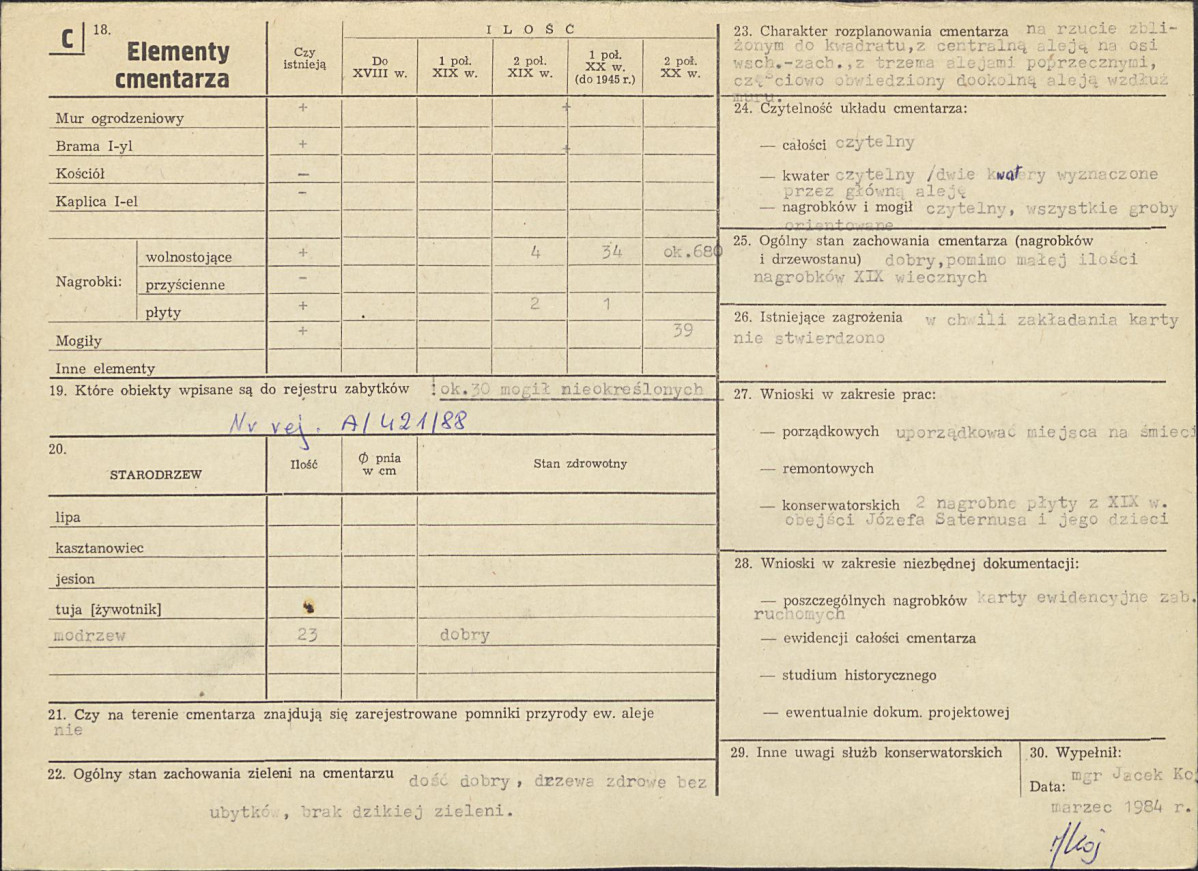 C
18.
Elementy
cmentarza
Czy
istnieją
I L O Ś Ć
Do
XVIII w.
1 poł.
XIX w.
2 poł.
XIX w.
1 poł.
XX w.
(do 1945 r.)
2 poł.
XX w.
Mur ogrodzeniowy + +
Brama I-yl + +
Kościół —
Kaplica I-el -
Nagrobki:
wolnostojące + 4 34 ok.680
przyścienne -
płyty + 2 1
Mogiły + 39
Inne elementy
19. Które obiekty wpisane są do rejestru zabytków !ok.30 mogił nieokreślonych
Nr rej. A/421/88
20.
STARODRZEW
Ilość
Ø pnia
w cm
Stan zdrowotny
lipa
kasztanowiec
jesion
tuja [żywotnik]
modrzew 23 dobry
21. Czy na terenie cmentarza znajdują się zarejestrowane pomniki przyrody ew. aleje
nie
22. Ogólny stan zachowania zieleni na cmentarzu dość dobry, drzewa zdrowe bez
ubytków, brak dzikiej zieleni.
23. Charakter rozplanowania cmentarza na rzucie zbli-
żonym do kwadratu,z centralną aleją na osi
wsch.-zach.,z trzema alejami poprzecznymi,
częściowo obwiedziony dookolną aleją wzdłuż
muru.
24. Czytelność układu cmentarza:
— całości czytelny
— kwater czytelny /dwie kwatery wyznaczone
przez główną aleję
— nagrobków i mogił czytelny, wszystkie groby
orientowane
25. Ogólny stan zachowania cmentarza (nagrobków
i drzewostanu) dobry,pomimo małej ilości
nagrobków XIX wiecznych
26. Istniejące zagrożenia w chwili zakładania karty
nie stwierdzono
27. Wnioski w zakresie prac:
— porządkowych uporządkować miejsca na śmieci
— remontowych
— konserwatorskich 2 nagrobne płyty z XIX w.
obejści Józefa Saternusa i jego dzieci
28. Wnioski w zakresie niezbędnej dokumentacji:
— poszczególnych nagrobków karty ewidencyjne zab.
ruchomych
— ewidencji całości cmentarza
— studium historycznego
— ewentualnie dokum. projektowej
29. Inne uwagi służb konserwatorskich
30. Wypełnił:
mgr Jacek Koj
Data:
marzec 1984 r.